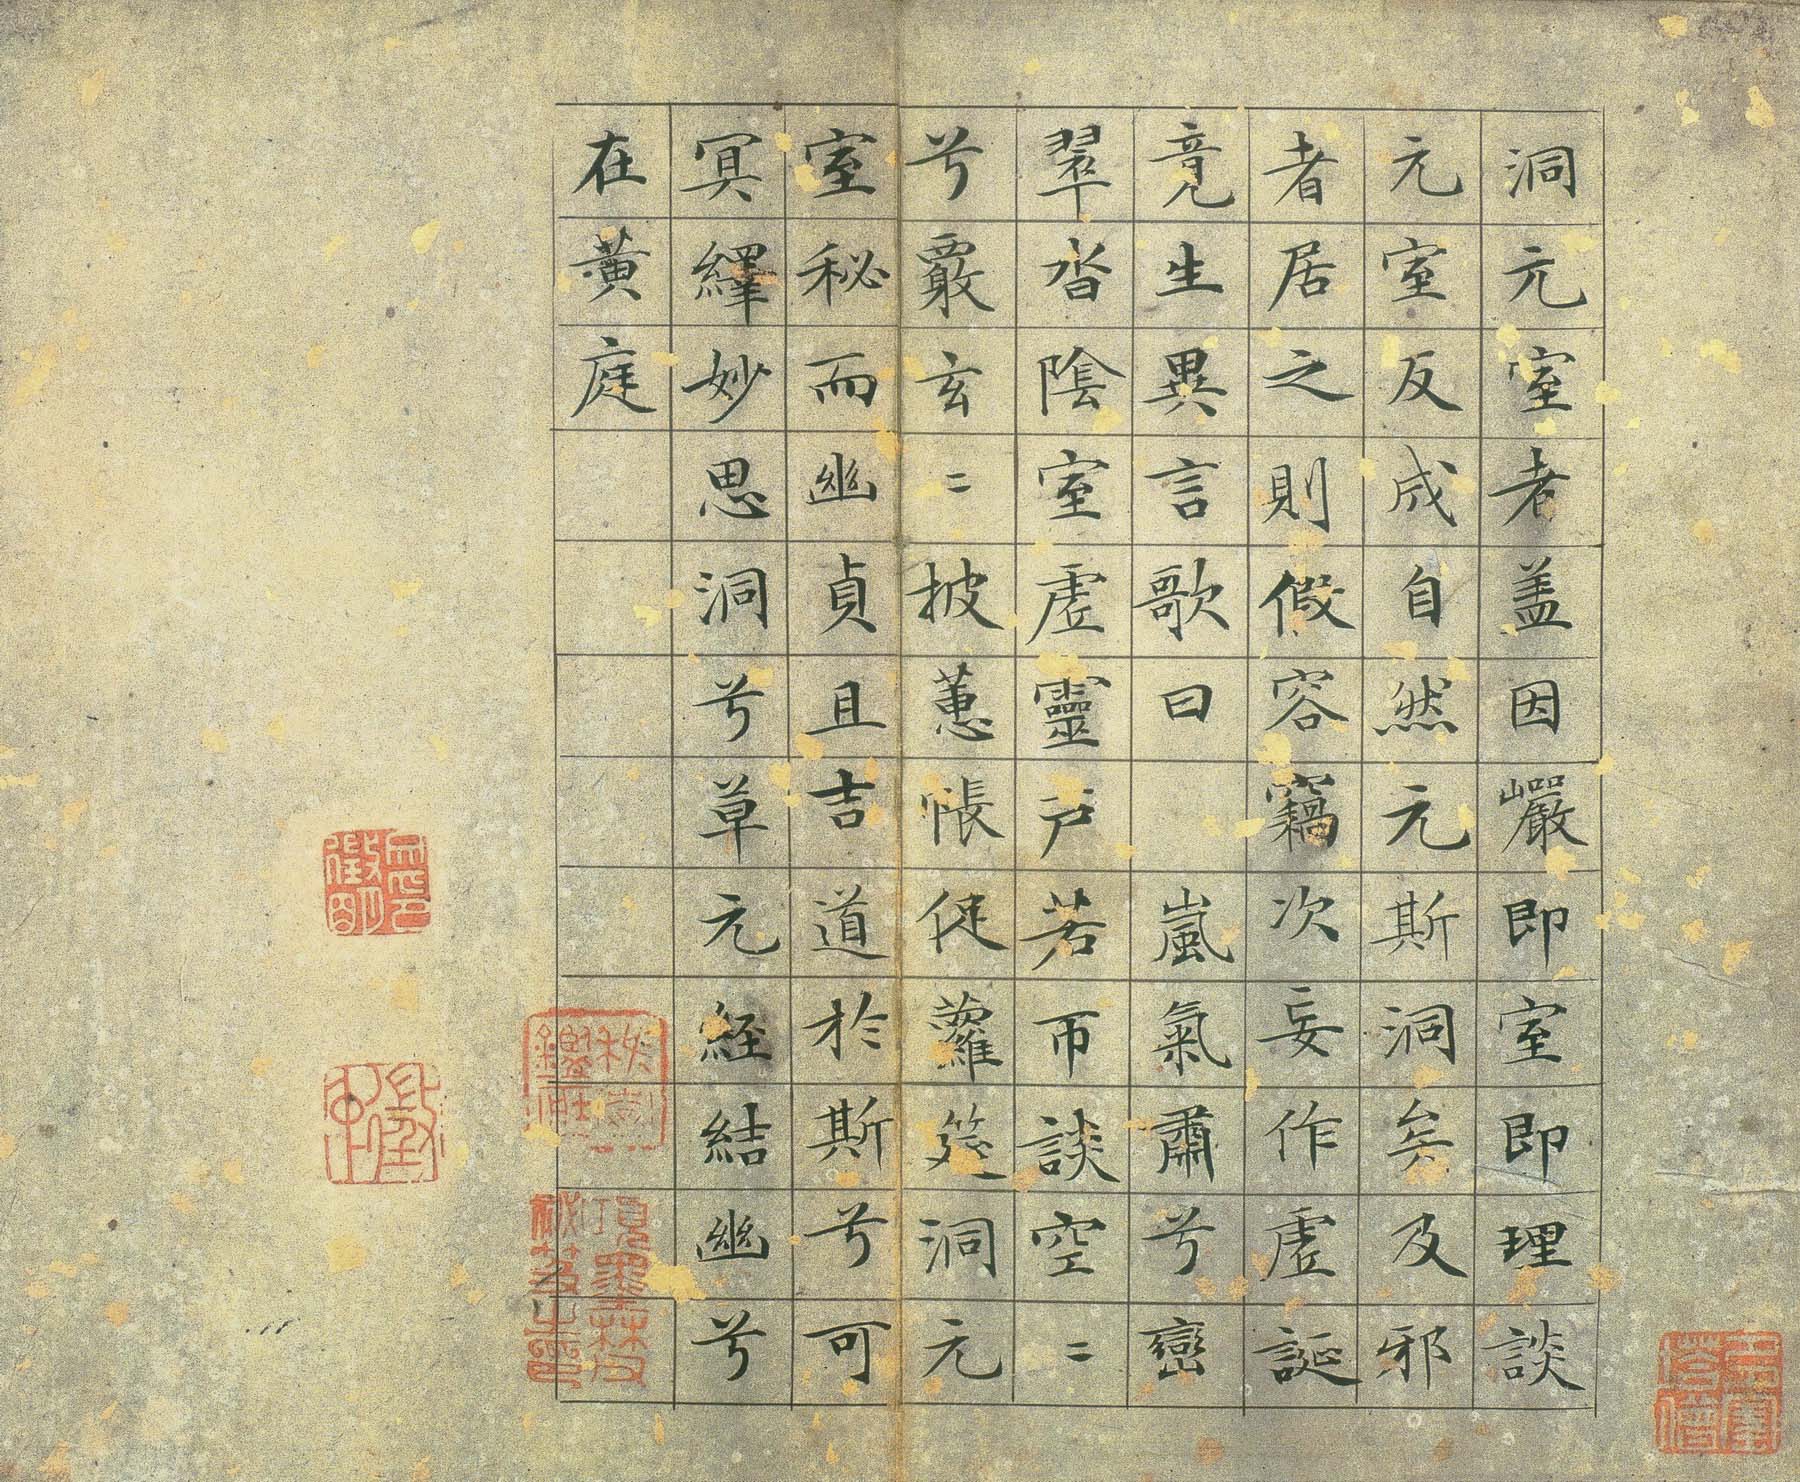 洞元室者盖因巗即室即理談
元室反成自然元斯洞矣及邪
者居之則假容竊次妄作虛誕
竟生異言歌曰　嵐氣肅兮巒
翠沓陰室虛靈戶若帀談空〻
兮覈玄〻披蕙帳促蘿筵洞元
室秘而幽貞且吉道於斯兮可
冥繹妙思洞兮草元經結幽兮
在黃庭
項墨林父秘笈之印